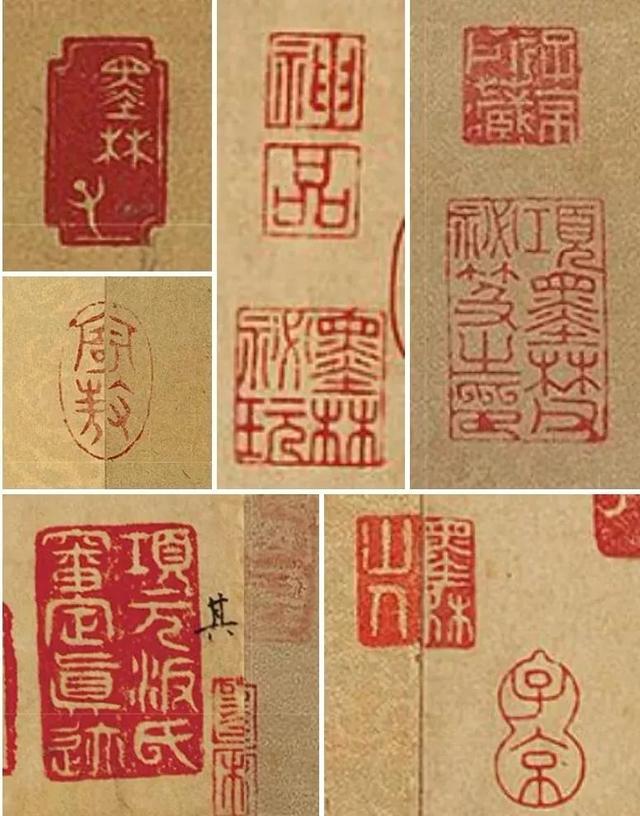 墨林子
寄敖
神品
墨林
祕玩
項墨林父
祕笈之印
項元汴氏
審定真迹
其
墨林
山人
子京